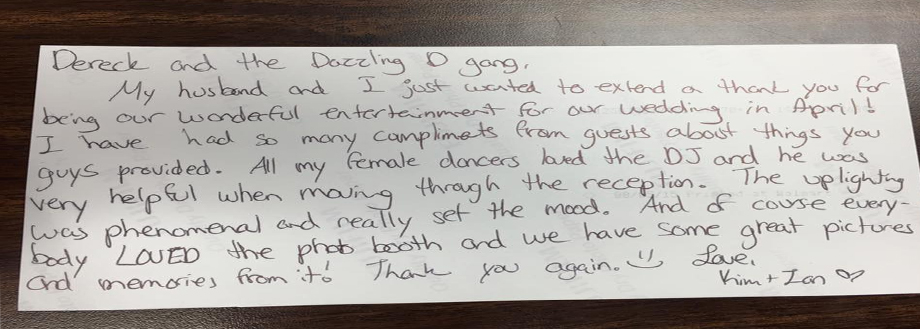 Dereck and the Dazzling D gang,
My husband and I just wanted to extend a thank you for
being our wonderful entertainment for our wedding in April!
I have had so many complimets from guests about things you
guys provided. All my female dancers loved the DJ and he was
very helpful when moving through the reception. The uplighting
was phenomenal and really set the mood. And of course every-
body LOVED the photo booth and we have some great pictures
and memories from it! Thank you again. Love,
Kim + Ian